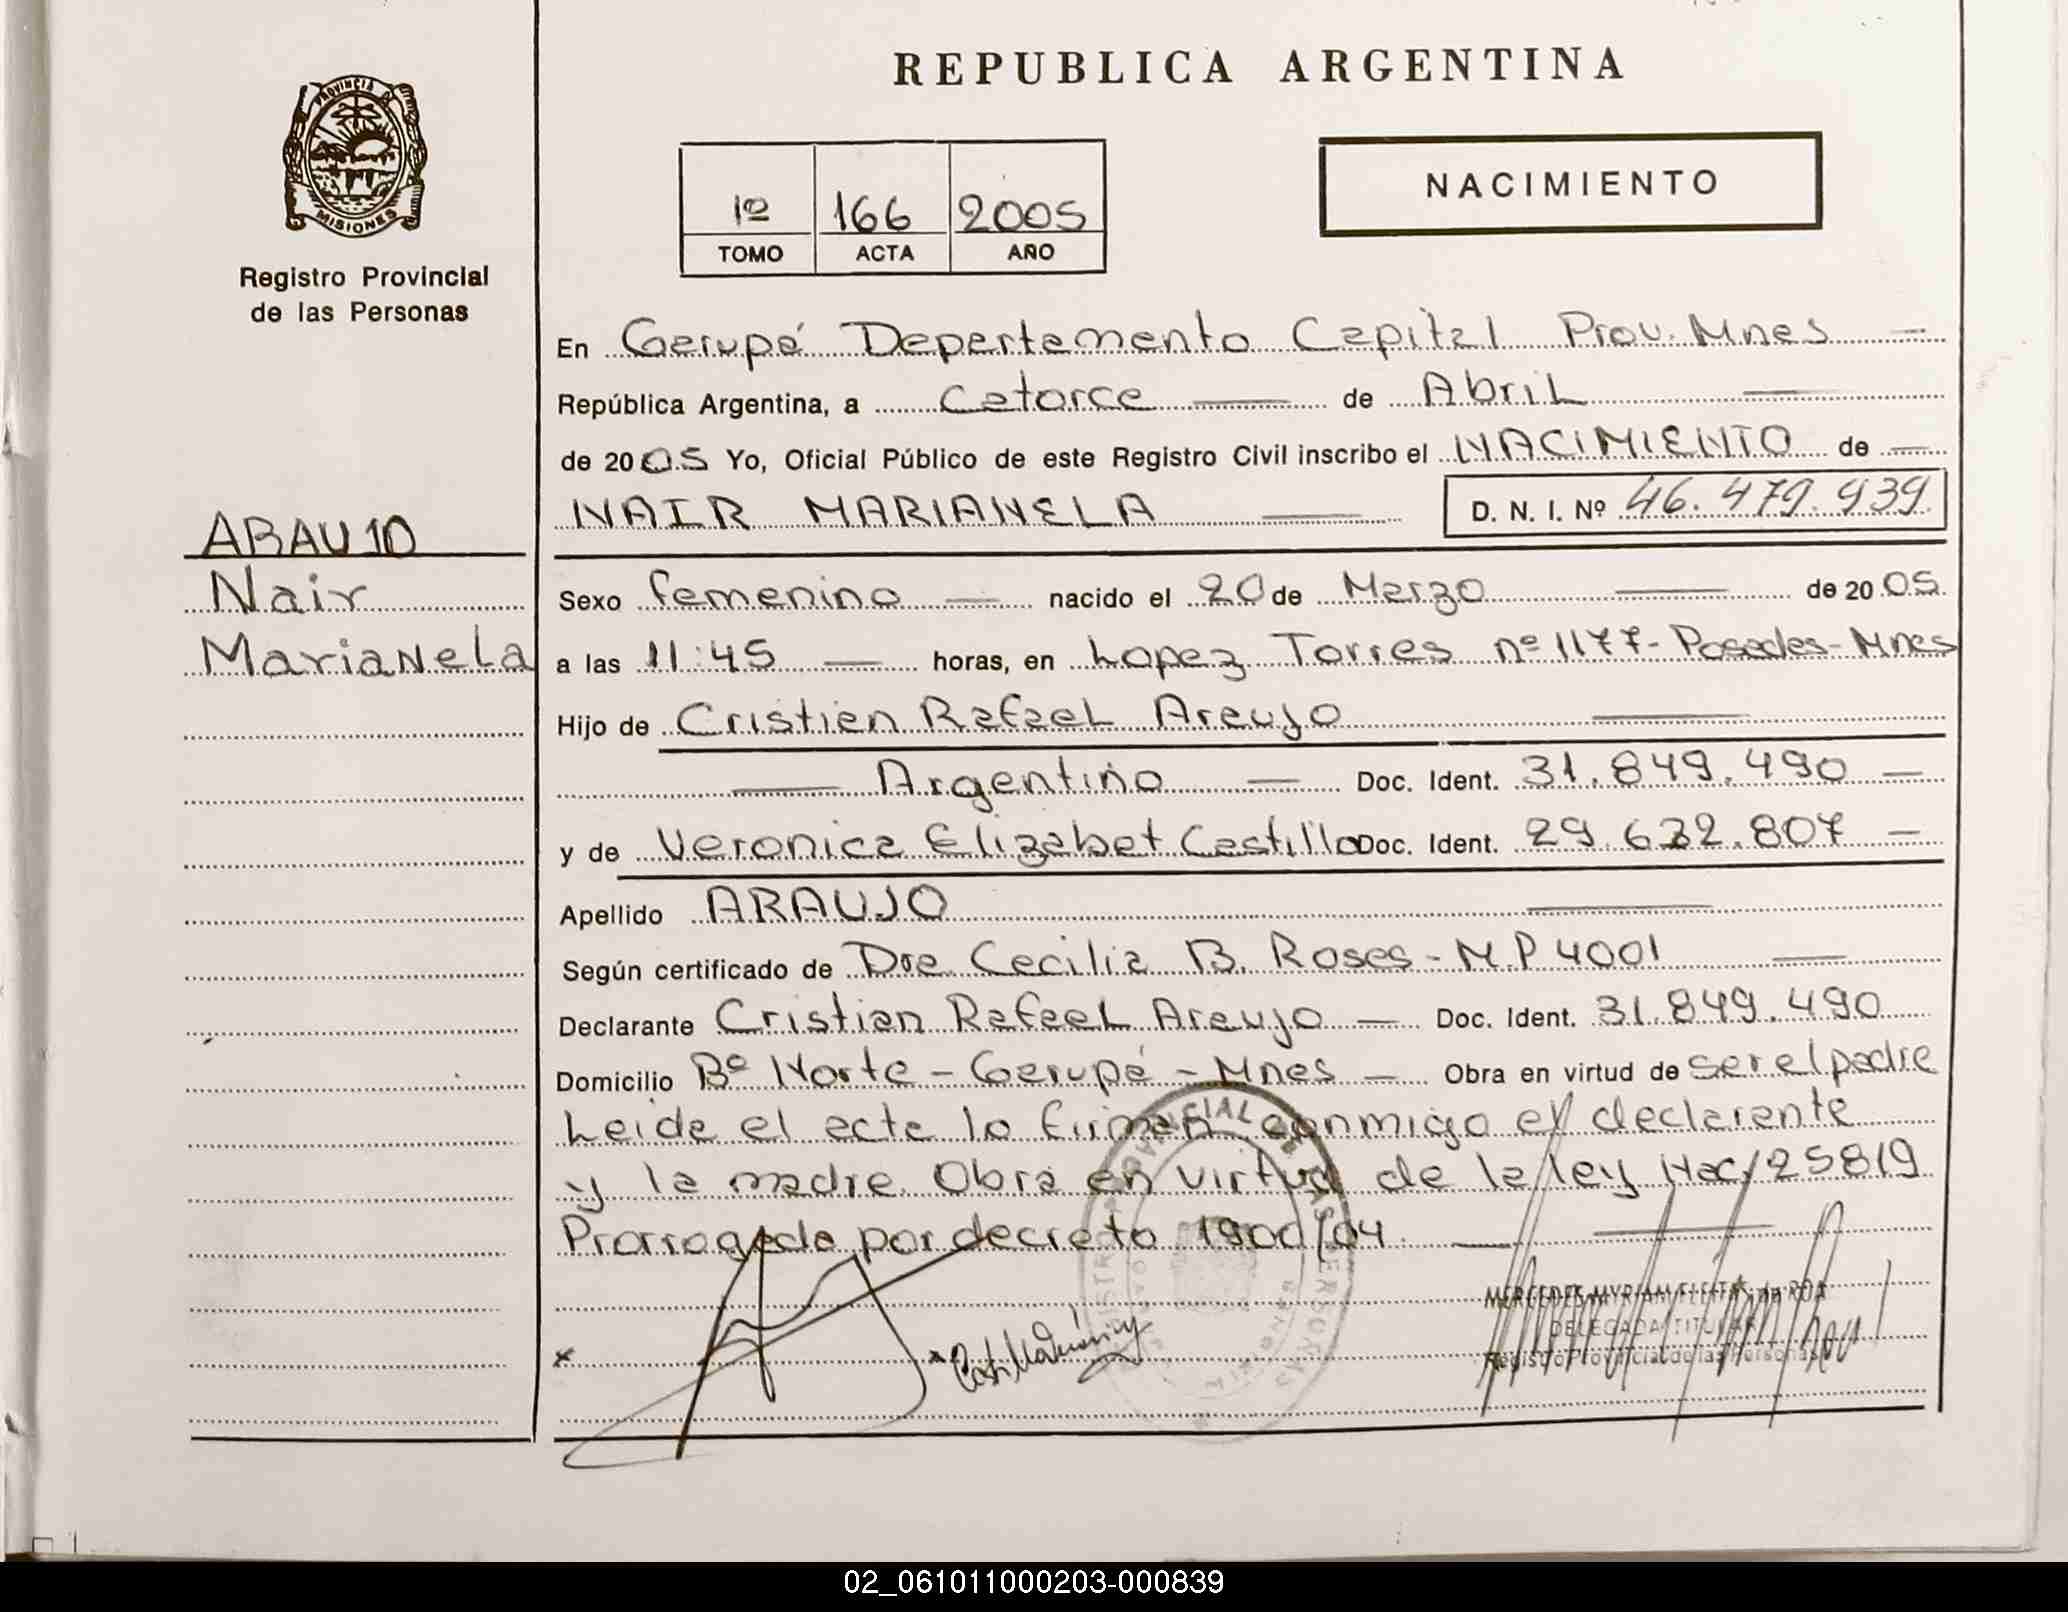 REPUBLICA ARGENTINA
PROVINCIA DE
MISIONES
Registro Provincial
de las Personas
1º 166 2005
TOMO ACTA AÑO
NACIMIENTO
En Garupá Departamento Capital Prov. Mnes
República Argentina, a catorce de Abril
de 2005 Yo, Oficial Público de este Registro Civil inscribo el NACIMIENTO de
NAIR MARIANELA D. N. I. Nº 46.479.939
ARAUJO
Nair
Marianela
Sexo femenino nacido el 20 de Marzo de 2005.
a las 11:45 horas, en Lopez Torres nº 1177- Posadas- Mnes
Hijo de Cristian Rafael Araujo
Argentino Doc. Ident. 31.849.490
y de Veronica Elizabet Castillo Doc. Ident. 29.632.807
Apellido ARAUJO
Según certificado de Dra Cecilia B. Rosas - M.P 4001
Declarante Cristian Rafael Araujo Doc. Ident. 31.849.490
Domicilio Bº Norte - Garupá - Mnes Obra en virtud de ser el padre
Leida el acta lo firman conmigo el declarante
y la madre. Obra en virtud de la ley Nac/25819
Prorrogada por decreto 1900/04.
MERCEDES MYRIAM FLEITAS da ROA
DELEGADA TITULAR
Registro Provincial de las Personas
x x Castillo Verónica
02_061011000203-000839